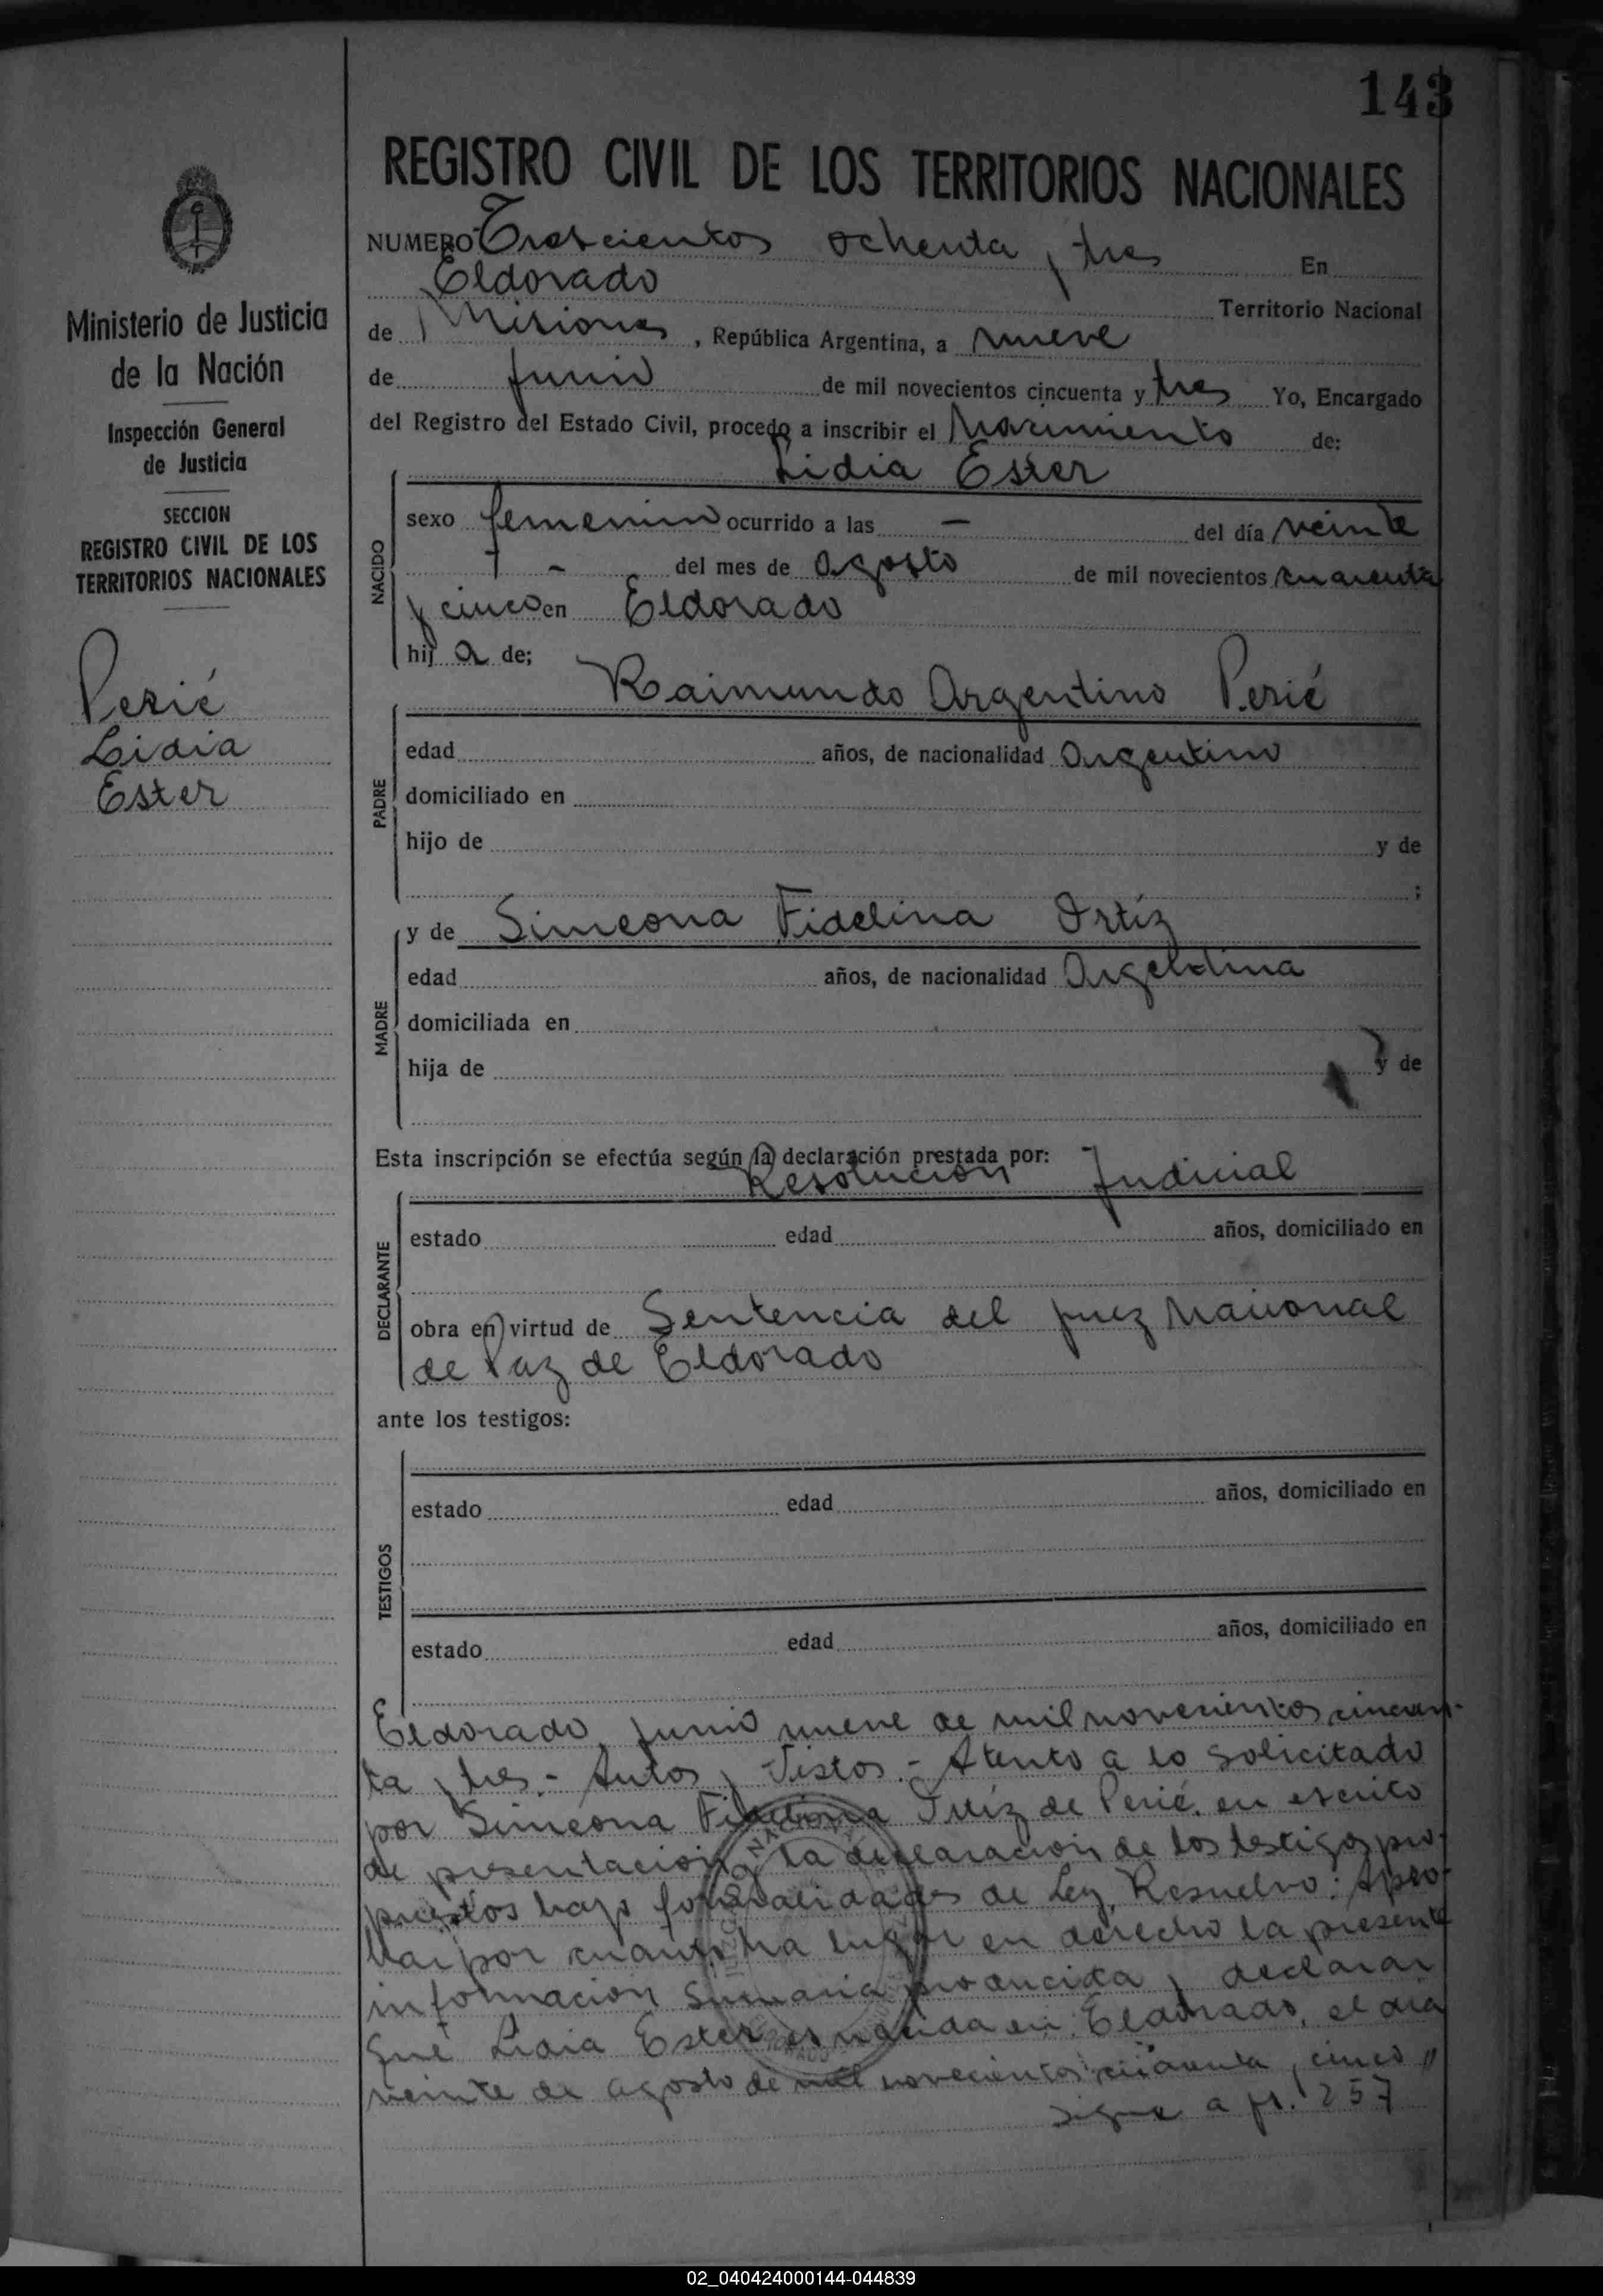 143
REGISTRO CIVIL DE LOS TERRITORIOS NACIONALES
NUMERO Trescientos ochenta y tres En
Eldorado Territorio Nacional
de Misiones, República Argentina, a nueve
de junio de mil novecientos cincuenta y tres Yo, Encargado
del Registro del Estado Civil, procedo a inscribir el Nacimiento de:
Lidia Ester
sexo femenino ocurrido a las — del día veinte
- del mes de agosto de mil novecientos cuarenta
y cinco en Eldorado
hij a de;
Raimundo Argentino Perié
edad años, de nacionalidad Argentino
domiciliado en
hijo de y de
;
y de Simeona Fidelina Ortíz
edad años, de nacionalidad Argentina
domiciliada en
hija de y de
Esta inscripción se efectúa según la declaración prestada por:
Resolución Judicial
estado edad años, domiciliado en
obra en virtud de Sentencia del juez Nacional
de Paz de Eldorado
ante los testigos:
estado edad años, domiciliado en
estado edad años, domiciliado en
NACIDO
PADRE
MADRE
DECLARANTE
TESTIGOS
Eldorado, junio nueve de mil novecientos cincuen-
ta y tres.- Autos y Vistos.- Atento a lo solicitado
por Simeona Fidelina Ortíz de Perié, en escrito
de presentación y la declaración de los testigos pro-
puestos bajo formalidades de Ley, Resuelvo: Apro-
bar por cuanto ha lugar en derecho la presente
información sumaria producida y declarar
que Lidia Ester es nacida en Eldorado, el día
veinte de agosto de mil novecientos cuarenta y cinco //
sigue a fs. 257
Ministerio de Justicia
de la Nación
Inspección General
de Justicia
SECCION
REGISTRO CIVIL DE LOS
TERRITORIOS NACIONALES
Perié
Lidia
Ester
02_040424000144-044839